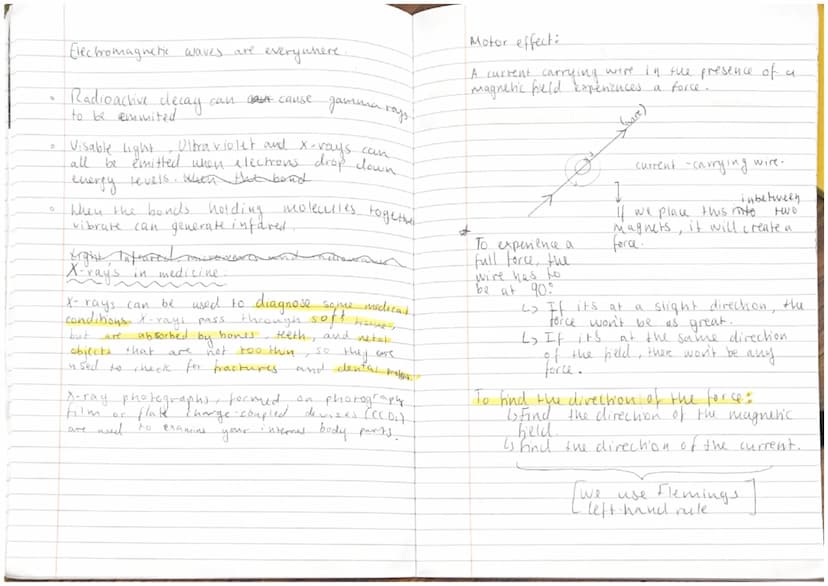 Electromagnetic waves are everywhere.
Radioactive decay can cause gamma rays
to be emmited
Visable light, Ultraviolet and X-rays can
all be emitted when electrons drop down
energy levels. When the bond
When the bonds holding molecules together
vibrate can generate infared.
Light Infared microwaves and
X-rays in medicine.
X-rays can be used to diagnose some medical
conditions. X-rays pass through soft tissue,
but are absorbed by bones, teeth, and metal
objects that are not too thin, so they are
used to check for fractures and dental
X-ray photographs, formed on photography
film or flate charge-coupled devices (CCDs)
are used to examine your internal body parts.
Motor effect:
A current carrying wire in the presence of a
magnetic field experiences a force.
(wire)
current-carrying wire.
inbetween
If we place this two
magnets, it will create a
force.
To experience a
full force, the
wire has to
be at 90°
If its at a slight direction, the
force won't be as great.
If its at the same direction
of the field, there won't be any
force.
To find the direction of the force:
find the direction of the magnetic
field.
find the direction of the current.
[we use Flemings
left-hand rule]